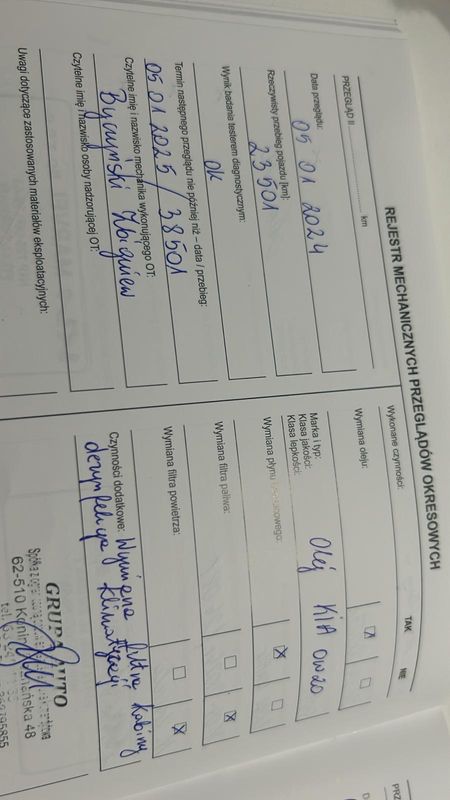 REJESTR MECHANICZNYCH PRZEGLĄDÓW OKRESOWYCH
PRZEGLĄD II ........ km
Data przeglądu:
05 01 2024
Rzeczywisty przebieg pojazdu [km]:
23501
Wynik badania testerem diagnostycznym:
OK
Termin następnego przeglądu nie później niż – data / przebieg:
05 01 2025 / 38501
Czytelne imię i nazwisko mechanika wykonującego OT:
Byczyński Zbigniew
Czytelne imię i nazwisko osoby nadzorującej OT:
Uwagi dotyczące zastosowanych materiałów eksploatacyjnych:
Wykonane czynności:
TAK NIE
Wymiana oleju:
Marka i typ:
Klasa jakości:
Klasa lepkości:
Olej KIA 0W20
Wymiana płynu hamulcowego:
Wymiana filtra paliwa:
Wymiana filtra powietrza:
Czynności dodatkowe: Wymiana filtra kabiny
dezynfekcja klimatyzacji
GRUPA AUTO
62-510 Konin
48
tel.
PRZ